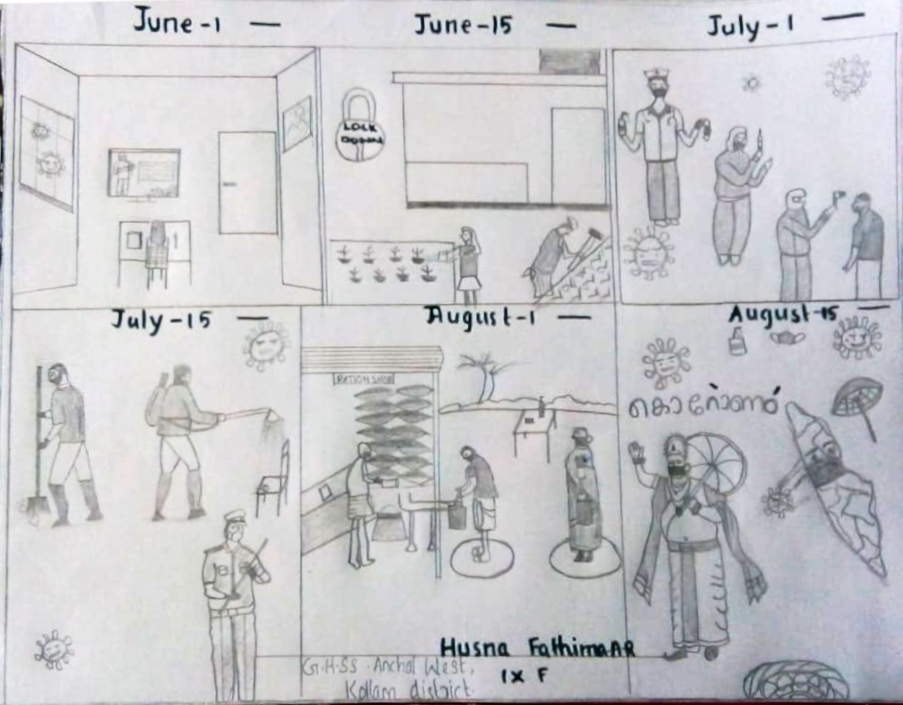 June-1 —
June-15 —
July-1 —
LOCK
DOWN
July-15 —
August-1 —
August-15 —
RATION SHOP
കൊറോണം
Husna Fathima A R
IX F
G.H.SS. Anchal West,
Kollam district.